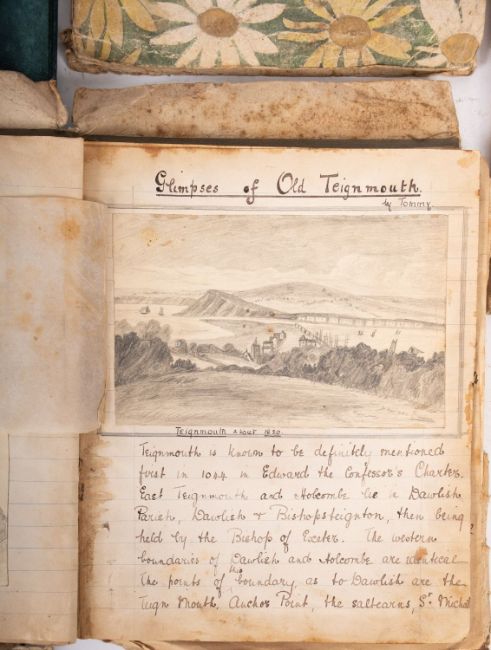 Glimpses of Old Teignmouth.
by Tommy.
Teignmouth about 1830.
Teignmouth is known to be definitely mentioned
first in 1044 in Edward the Confessor's Charter.
East Teignmouth and Holcombe lie in Dawlish
Parish, Dawlish & Bishopsteignton, then being
held by the Bishop of Exeter. The western
boundaries of Dawlish and Holcombe are identical
The points of the boundary, as to Dawlish are the
Teign Mouth, Anchor Point, the saltearns, St. Michael